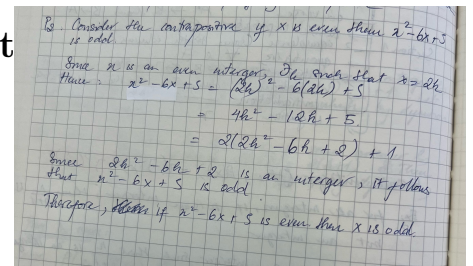 t
P2. Consider the contrapositive if x is even then x² - 6x + 5
is odd
Since x is an even interger, ∃k such that x = 2k
Hence: x² - 6x + 5 = (2k)² - 6(2k) + 5
= 4k² - 12k + 5
= 2(2k² - 6k + 2) + 1
Since 2k² - 6k + 2 is an interger, it follows
that x² - 6x + 5 is odd
Therefore, if x² - 6x + 5 is even then x is odd